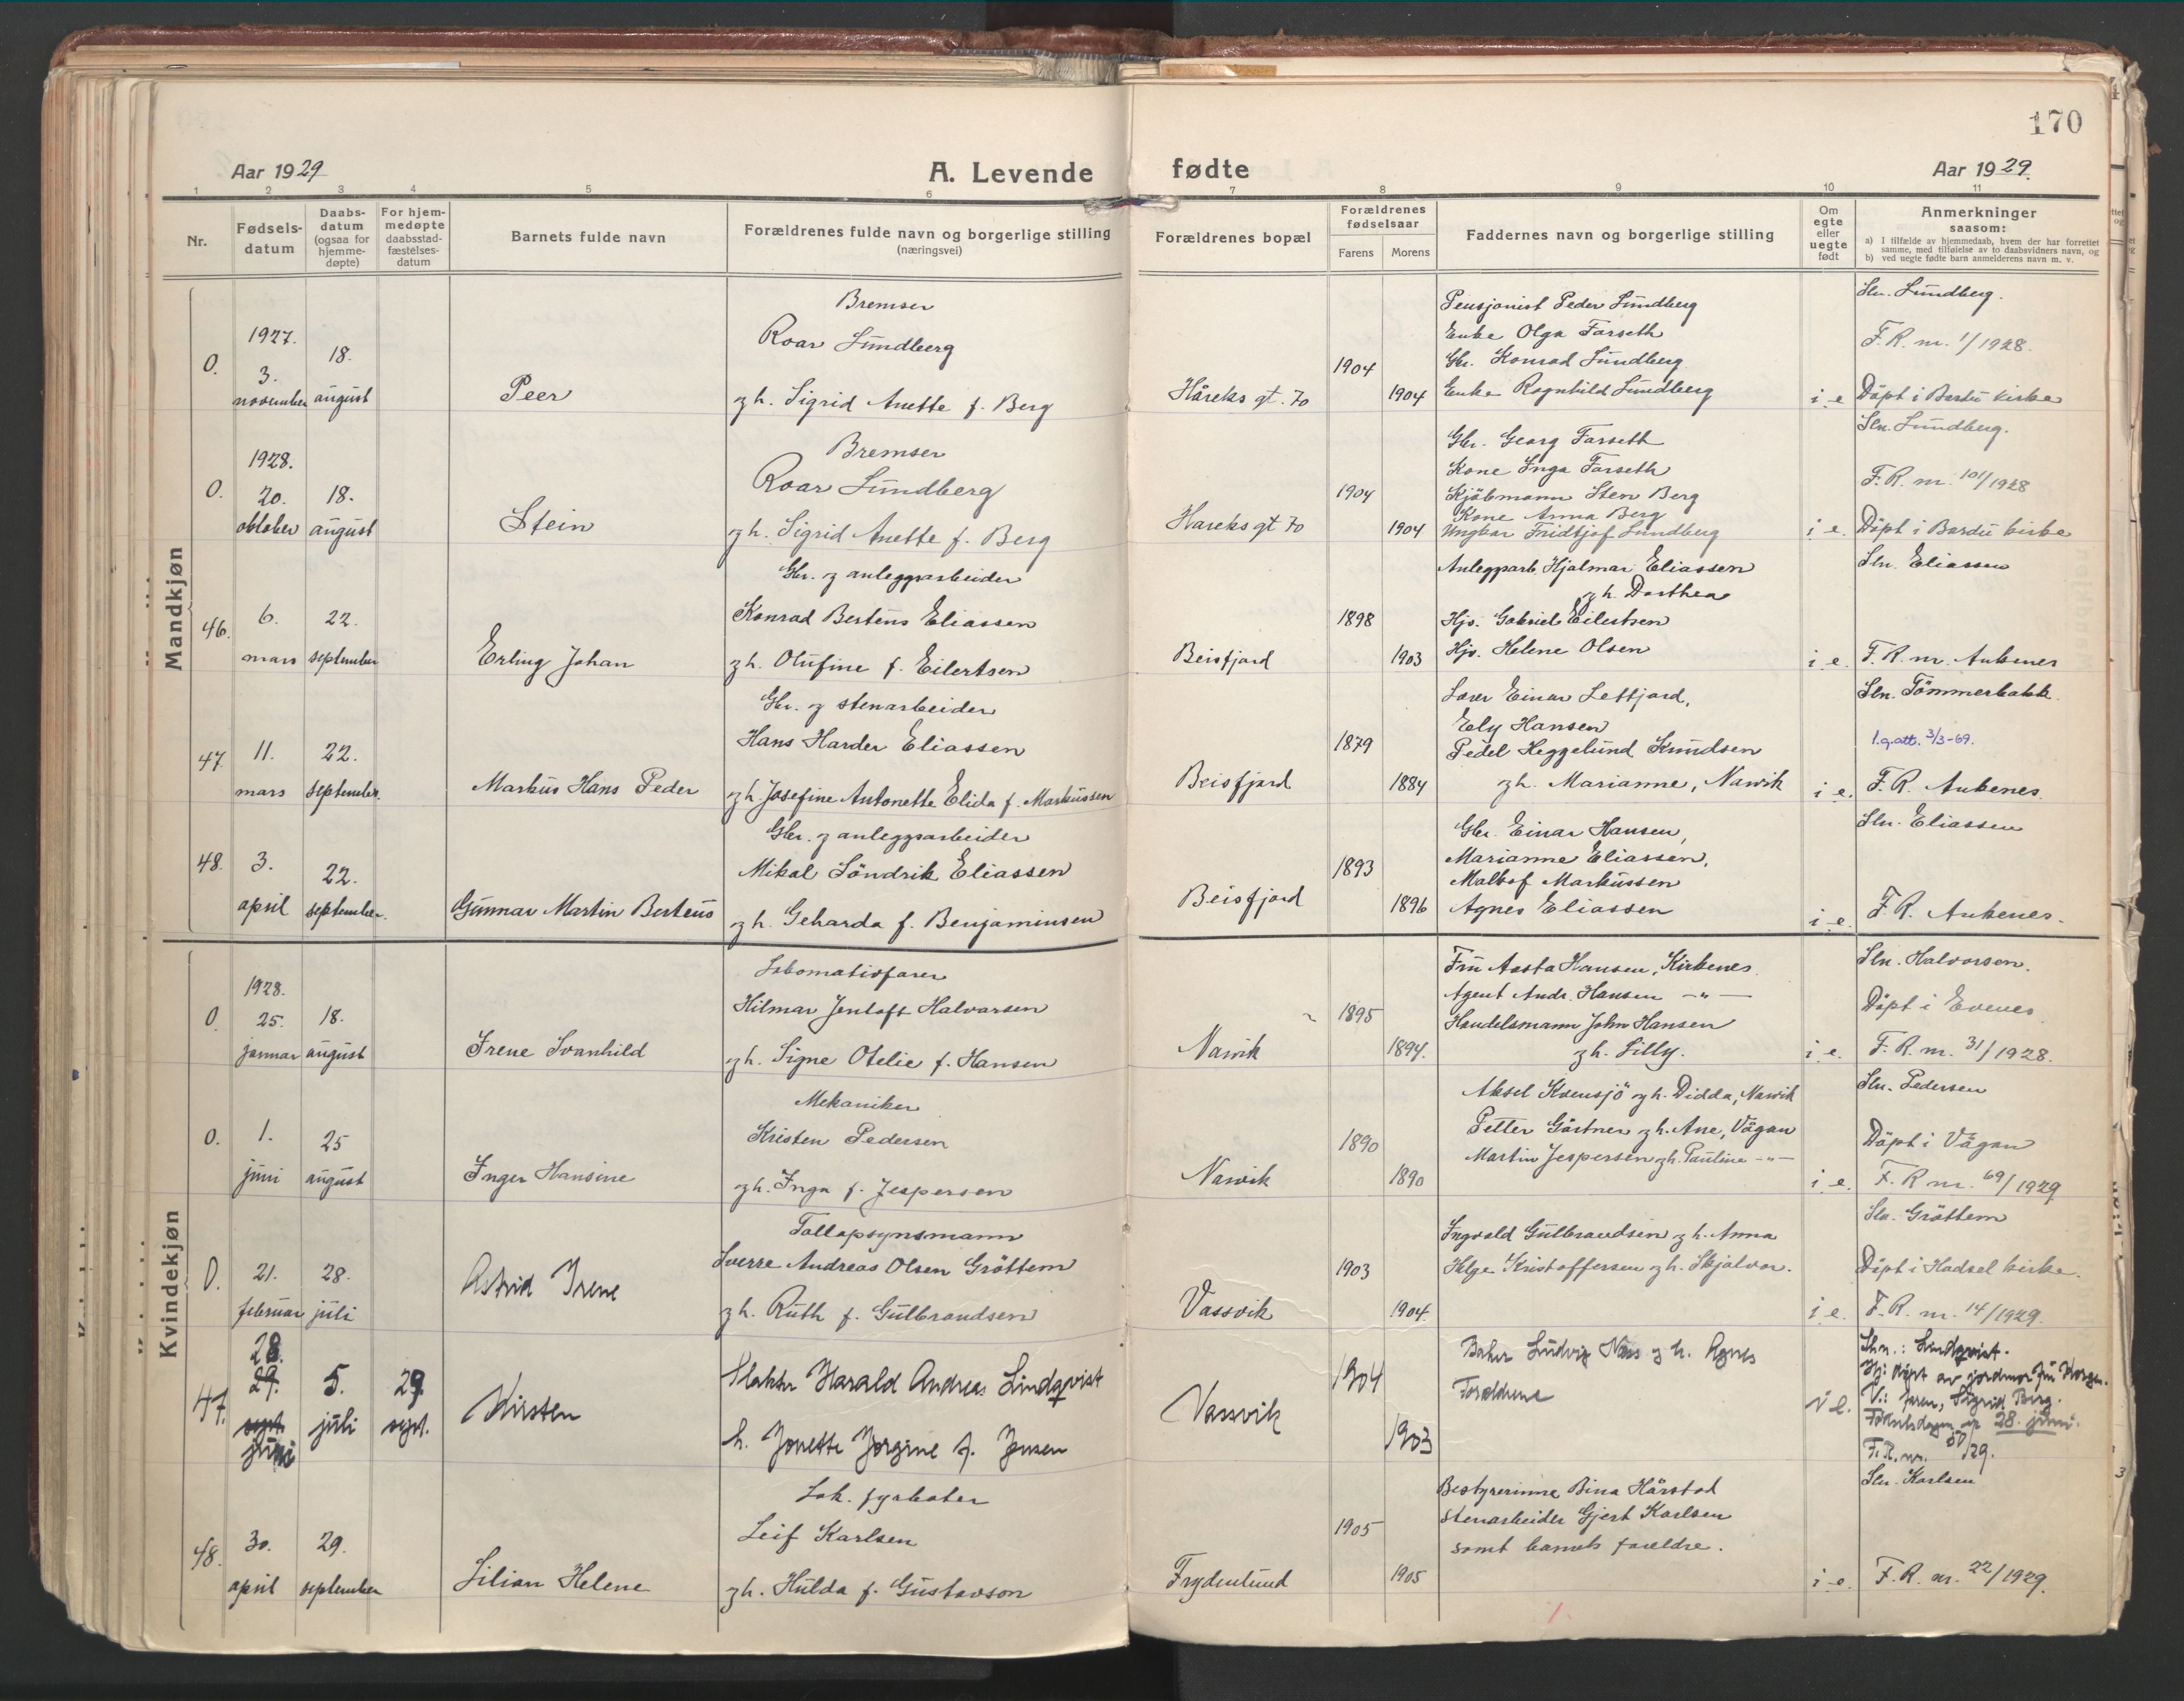 170
Aar 1929
A. Levende fødte
Aar 1929.
1 2 3 4 5 6 7 8 9 10 11
Nr.
Fødselsdatum
Daabsdatum (ogsaa for hjemmedøpte)
For hjemmedøpte daabsstadfæstelsesdatum
Barnets fulde navn
Forældrenes fulde navn og borgerlige stilling (næringsvei)
Forældrenes bopæl
Forældrenes fødselsaar
Farens
Morens
Faddernes navn og borgerlige stilling
Om egte eller uegte født
Anmerkninger saasom:
a) I tilfælde av hjemmedaab, hvem der har forrettet samme, med tilføielse av to daabsvidners navn, og
b) ved uegte fødte barn anmelderens navn m. v.
Mandkjøn
0.
1927.
3.
november
18.
august
Peer
Bremser
Roar Lundberg
og h. Sigrid Anette f. Berg
Håreks gt. 70
1904
1904
Pensjonist Peder Lundberg
Enke Olga Farseth
Gbr. Konrad Lundberg
Enke Ragnhild Lundberg
i e
Sln. Lundberg.
F. R. nr. 1/1928.
Döpt i Bardu kirke
0.
1928.
20.
oktober
18.
august
Stein
Bremser
Roar Lundberg
og h. Sigrid Anette f. Berg
Hareks gt 70
1904
1904
Gbr. Georg Farseth
Kone Inga Farseth
Kjöbmann Sten Berg
Kone Anna Berg
Ungkar Fridtjof Lundberg
i e.
Sln. Lundberg.
F. R. nr. 101/1928
Döpt i Bardu kirke
46.
6.
mars
22.
september
Erling Johan
Gbr. og anleggsarbeider
Konrad Berteus Eliassen
og h. Olufine f. Eilertsen
Beisfjord
1898
1903
Anleggsarb. Hjalmar Eliassen
og h. Dorthea
Hjs. Gabriel Eilertsen
Hjs. Helene Olsen
i e.
Sln. Eliassen
F. R. nr. Ankenes
47.
11.
mars
22.
september.
Markus Hans Peder
Gbr. og stenarbeider
Hans Harder Eliassen
og h. Josefine Antonette Elida f. Markussen
Beisfjord
1879
1884
Lærer Einar Letfjord,
Ely Hansen
Pedel Heggelund Knudsen
og h. Marianne, Narvik
i e.
Sln. Tömmerbakk.
l.g.att. 3/3-69.
F. R. Ankenes.
48.
3.
april
22.
september.
Gunnar Martin Berteus
Gbr. og anleggsarbeider
Mikal Söndrik Eliassen
og h. Geharda f. Benjaminsen
Beisfjord
1893
1896
Gbr. Einar Hansen,
Marianne Eliassen,
Malkof Markussen
Agnes Eliassen
i e.
Sln. Eliassen
F. R. Ankenes.
Kvindekjøn
0.
1928.
25.
januar
18.
august
Irene Svanhild
Lokomotivfører
Hilmar Jentoft Halvorsen
og h. Signe Otelie f. Hansen
Narvik
1895
1894.
Fru Aasta Hansen, Kirkenes.
Agent Andr. Hansen — " —
Handelsmann John Hansen
og h. Lilly.
i e.
Sln. Halvorsen.
Döpt i Evenes
F. R. nr. 31/1928.
0.
1.
juni
25
august
Inger Hansine
Mekaniker
Kristen Pedersen
og h. Inga f. Jespersen
Narvik
1890
1890
Aksel Kvensjö og h. Didda, Narvik
Petter Gärtner og h. Ane, Vågan
Martin Jespersen og h. Pauline — " —
i e.
Sln. Pedersen
Döpt i Vågan
F. R nr. 69/1929
0.
21.
februar
28.
juli
Astrid Irene
Tollopsynsmann
Sverre Andreas Olsen Gröttem
og h. Ruth f. Gulbrandsen
Vassvik
1903
1904.
Ingvald Gulbrandsen og h. Anna
Helge Kristoffersen og h. Skjalvor.
i e.
Sln. Gröttem
Döpt i Hadsel kirke.
F. R. nr. 14/1929.
47.
28.
29.
sept.
juni
5.
juli
29
sept.
Kirsten
Slakter Harald Andreas Lindqvist
h. Jonette Jorgine f. Jensen
Vassvik
1904
1903
Baker Ludvig Næs og h. Agnes
Foreldrene
i e.
Sln.: Lindqvist.
Hj. döpt av jordmor fru Korgen.
V.: faren, Sigrid Berg.
Födselsdagen er 28. juni.
F. R. nr. 50/29.
48.
30.
april
29.
september
Lilian Helene
Lok. fyrböter
Leif Karlsen
og h. Hulda f. Gustavson
Frydenlund
1905
1905
Bestyrerinne Bina Hårstad
Stenarbeider Gjert Karlsen
samt barnets foreldre.
i e.
Sln. Karlsen
F. R. nr. 22/1929.